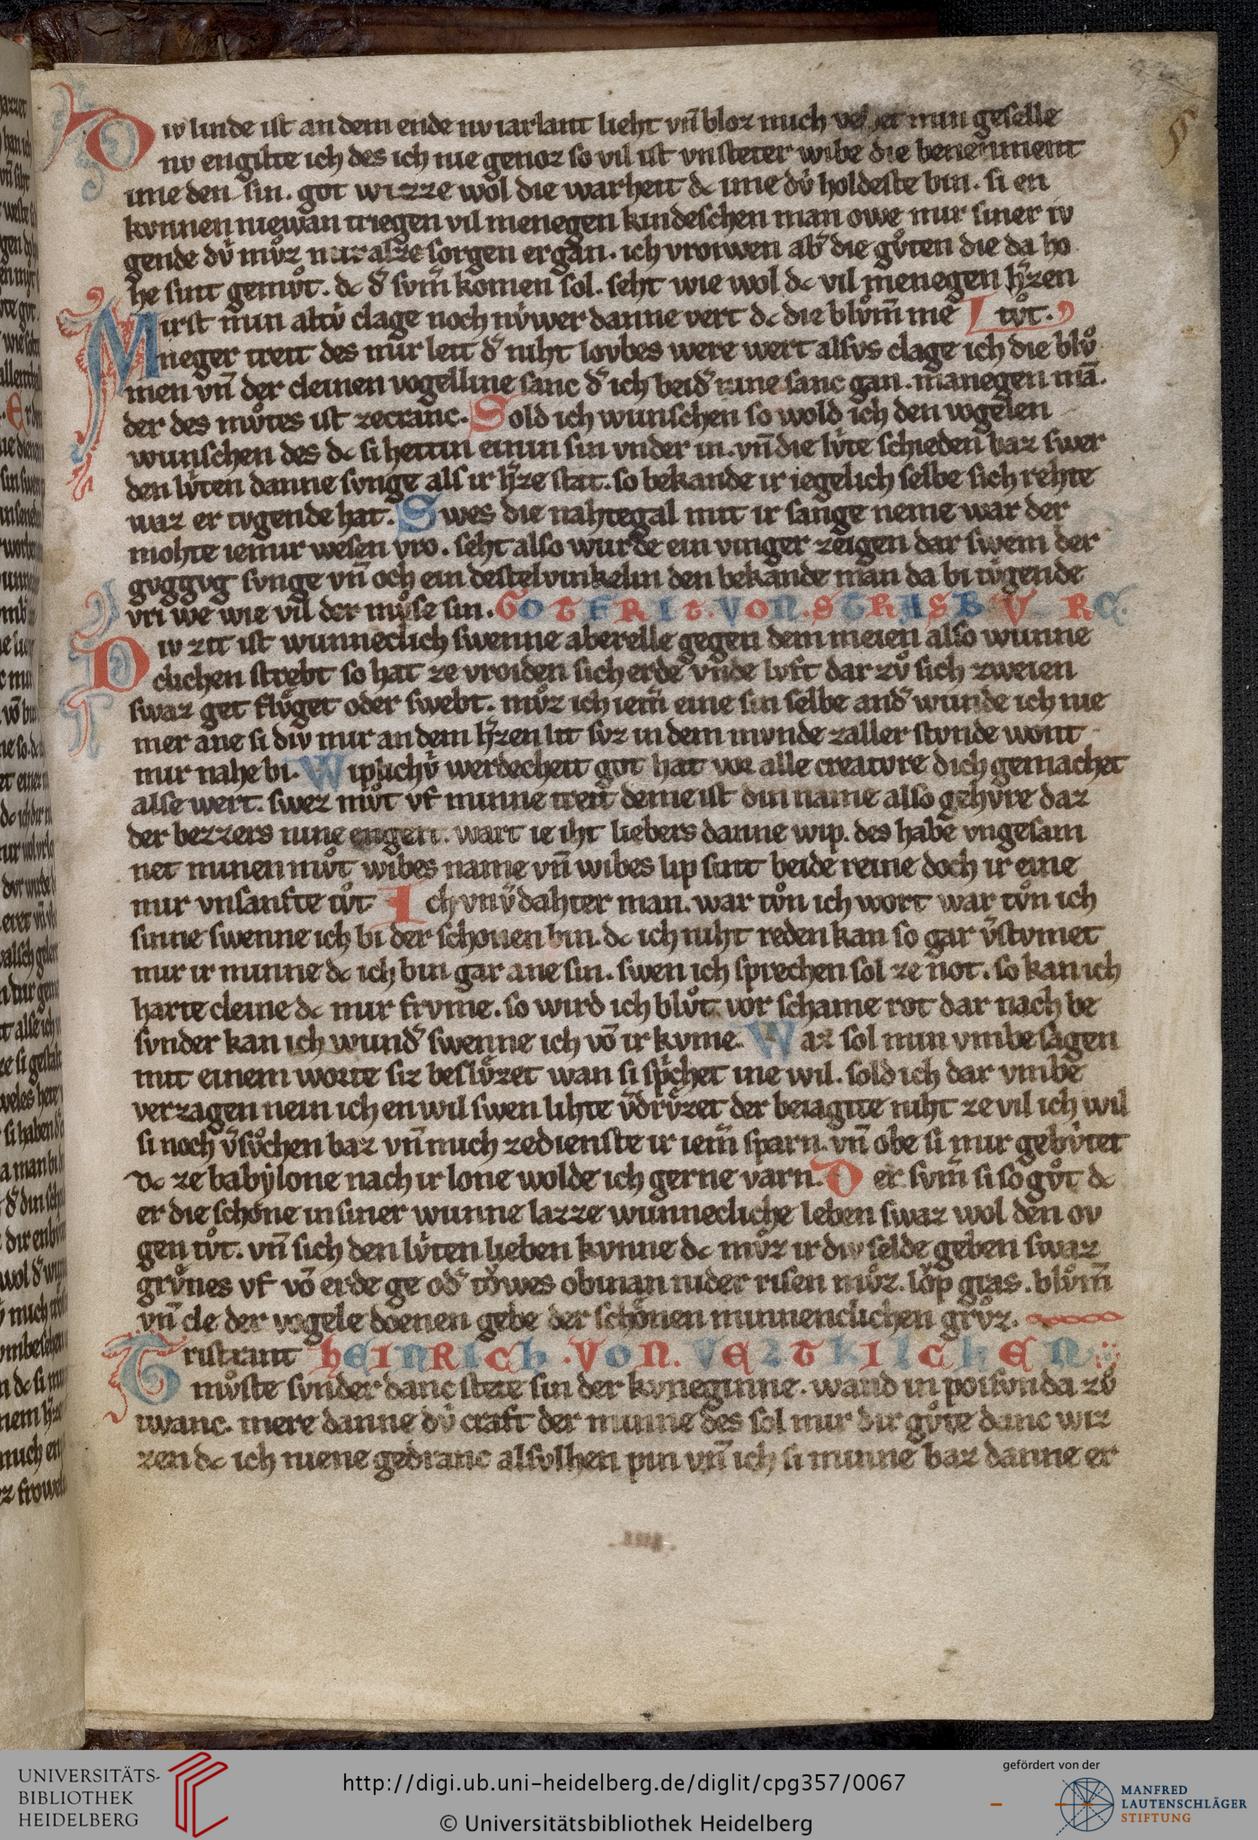 Diu linde ist an dem ende nv iarlant lieht vñ bloz mich vehet min geselle
nv engilte ich des ich nie genoz so vil ist vnsteter wibe die benement
ime den sin. got wizze wol die warheit dc ime dv̍ holdeste bin. si en
kvnnen niewan triegen vil menegen kindeschen man owe mir siner iv
gende dv̍ mvͦz mir alze sorgen ergan. ich vroiwen ab̕ die gvͦten die da ho
he sint gemvͦt. dc d̕ svm̕ komen sol. seht wie wol dc vil menegen h̕zen
Mirst min altv̍ clage noch nv̍wer danne vert dc die blvͦm̄ me tvͦt.
nieger treit des mir leit d̕ niht lovbes were wert alsvs clage ich die blvͦ
men vñ der cleinen vogelline sanc d̕ ich beid̕ mine sanc gan. manegen mā.
der des mvͦtes ist zecranc. Sold ich wunschen so wold ich den vogelen
wunschen des dc si hettin einin sin vnder in. vñ die lv̍te schieden baz swer
den lv̍ten danne svnge als ir h̕ze stat. so bekande ir iegelich selbe sich rehte
waz er tvgende hat. Swes die nahtegal mit ir sange neme war der
mohte iemir wesen vro. seht also wurde ein vinger zeigen dar swem der
gvggvg svnge vñ och ein destelvinkelin den bekande man da bi tvgende
vri we wie vil der mvͤse sin. GOTFRIT. VON. STRASBVRC.
Diu zit ist wunneclich swenne aberelle gegen dem meien also wunne
clichen strebt so hat ze vroiden sich erde vnde lvft dar zvͦ sich zweien
swaz get flvͤget oder swebt. mvͦz ich iem̕ eine sin selbe and̕ wunde ich nie
mer ane si div mir an dem h̕zen lit svz in dem mvnde zaller stvnde wont
mir nahe bi. Wiplichv̍ werdecheit got hat vor alle creatvre dich gemachet
alse wert. swez mvͦt vf minne treit deme ist din name also gehvre daz
der bezzers nine engert. wart ie iht liebers danne wip. des habe vngesam
net minen mvͦt wibes name vñ wibes lip sint beide reine doch ir eine
mir vnsanfte tvͦt Ich vnv̕dahter man. war tvͦn ich wort war tvͦn ich
sinne swenne ich bi der schonen bin. dc ich niht reden kan so gar v̕stvmet
mir ir minne dc ich bin gar ane sin. swen ich sprechen sol ze not. so kan ich
harte cleine dc mir frvme. so wird ich blvͦt vor schame rot dar nach be
svnder kan ich wund̕ swenne ich vō ir kvme. Waz sol min vmbe sagen
mit einem worte siz beslv̍zet wan si sp̕chet ine wil. sold ich dar vmbe
verzagen nein ich en wil swen lihte v̕drv̍zet der beiagite niht ze vil ich wil
si noch v̕svͦchen baz vñ mich zedienste ir iem̕ sparn. vñ obe si mir gebv̍tet
dc ze babẏlone nach ir lone wolde ich gerne varn. Der svm̕ si so gvͦt dc
er die schone in siner wunne lazze wunnecliche leben swaz wol den ov
gen tvͦt. vñ sich den lv̍ten lieben kvnne dc mvͦz ir div selde geben swaz
grvͤnes vf vō erde ge od̕ toͮwes obinan nider risen mvͦz. loͮp gras. blvͦm̄
vñ cle der vogele doenen gebe der schonen minnenclichen grvͦz.
Tristrant HEINRICH. VON. VELTKILCHEN
mvͦste svnder danc stete sin der kvneginne. wand in poisvn da zvͦ
twanc. mere danne dv̍ craft der minne des sol mir dir gvͦte danc wiz
zen dc ich niene gedranc alsvlhen pin vñ ich si minne baz danne er
UNIVERSITÄTS-
BIBLIOTHEK
HEIDELBERG
http://digi.ub.uni-heidelberg.de/diglit/cpg357/0067
© Universitätsbibliothek Heidelberg
gefördert von der
MANFRED
LAUTENSCHLÄGER
STIFTUNG